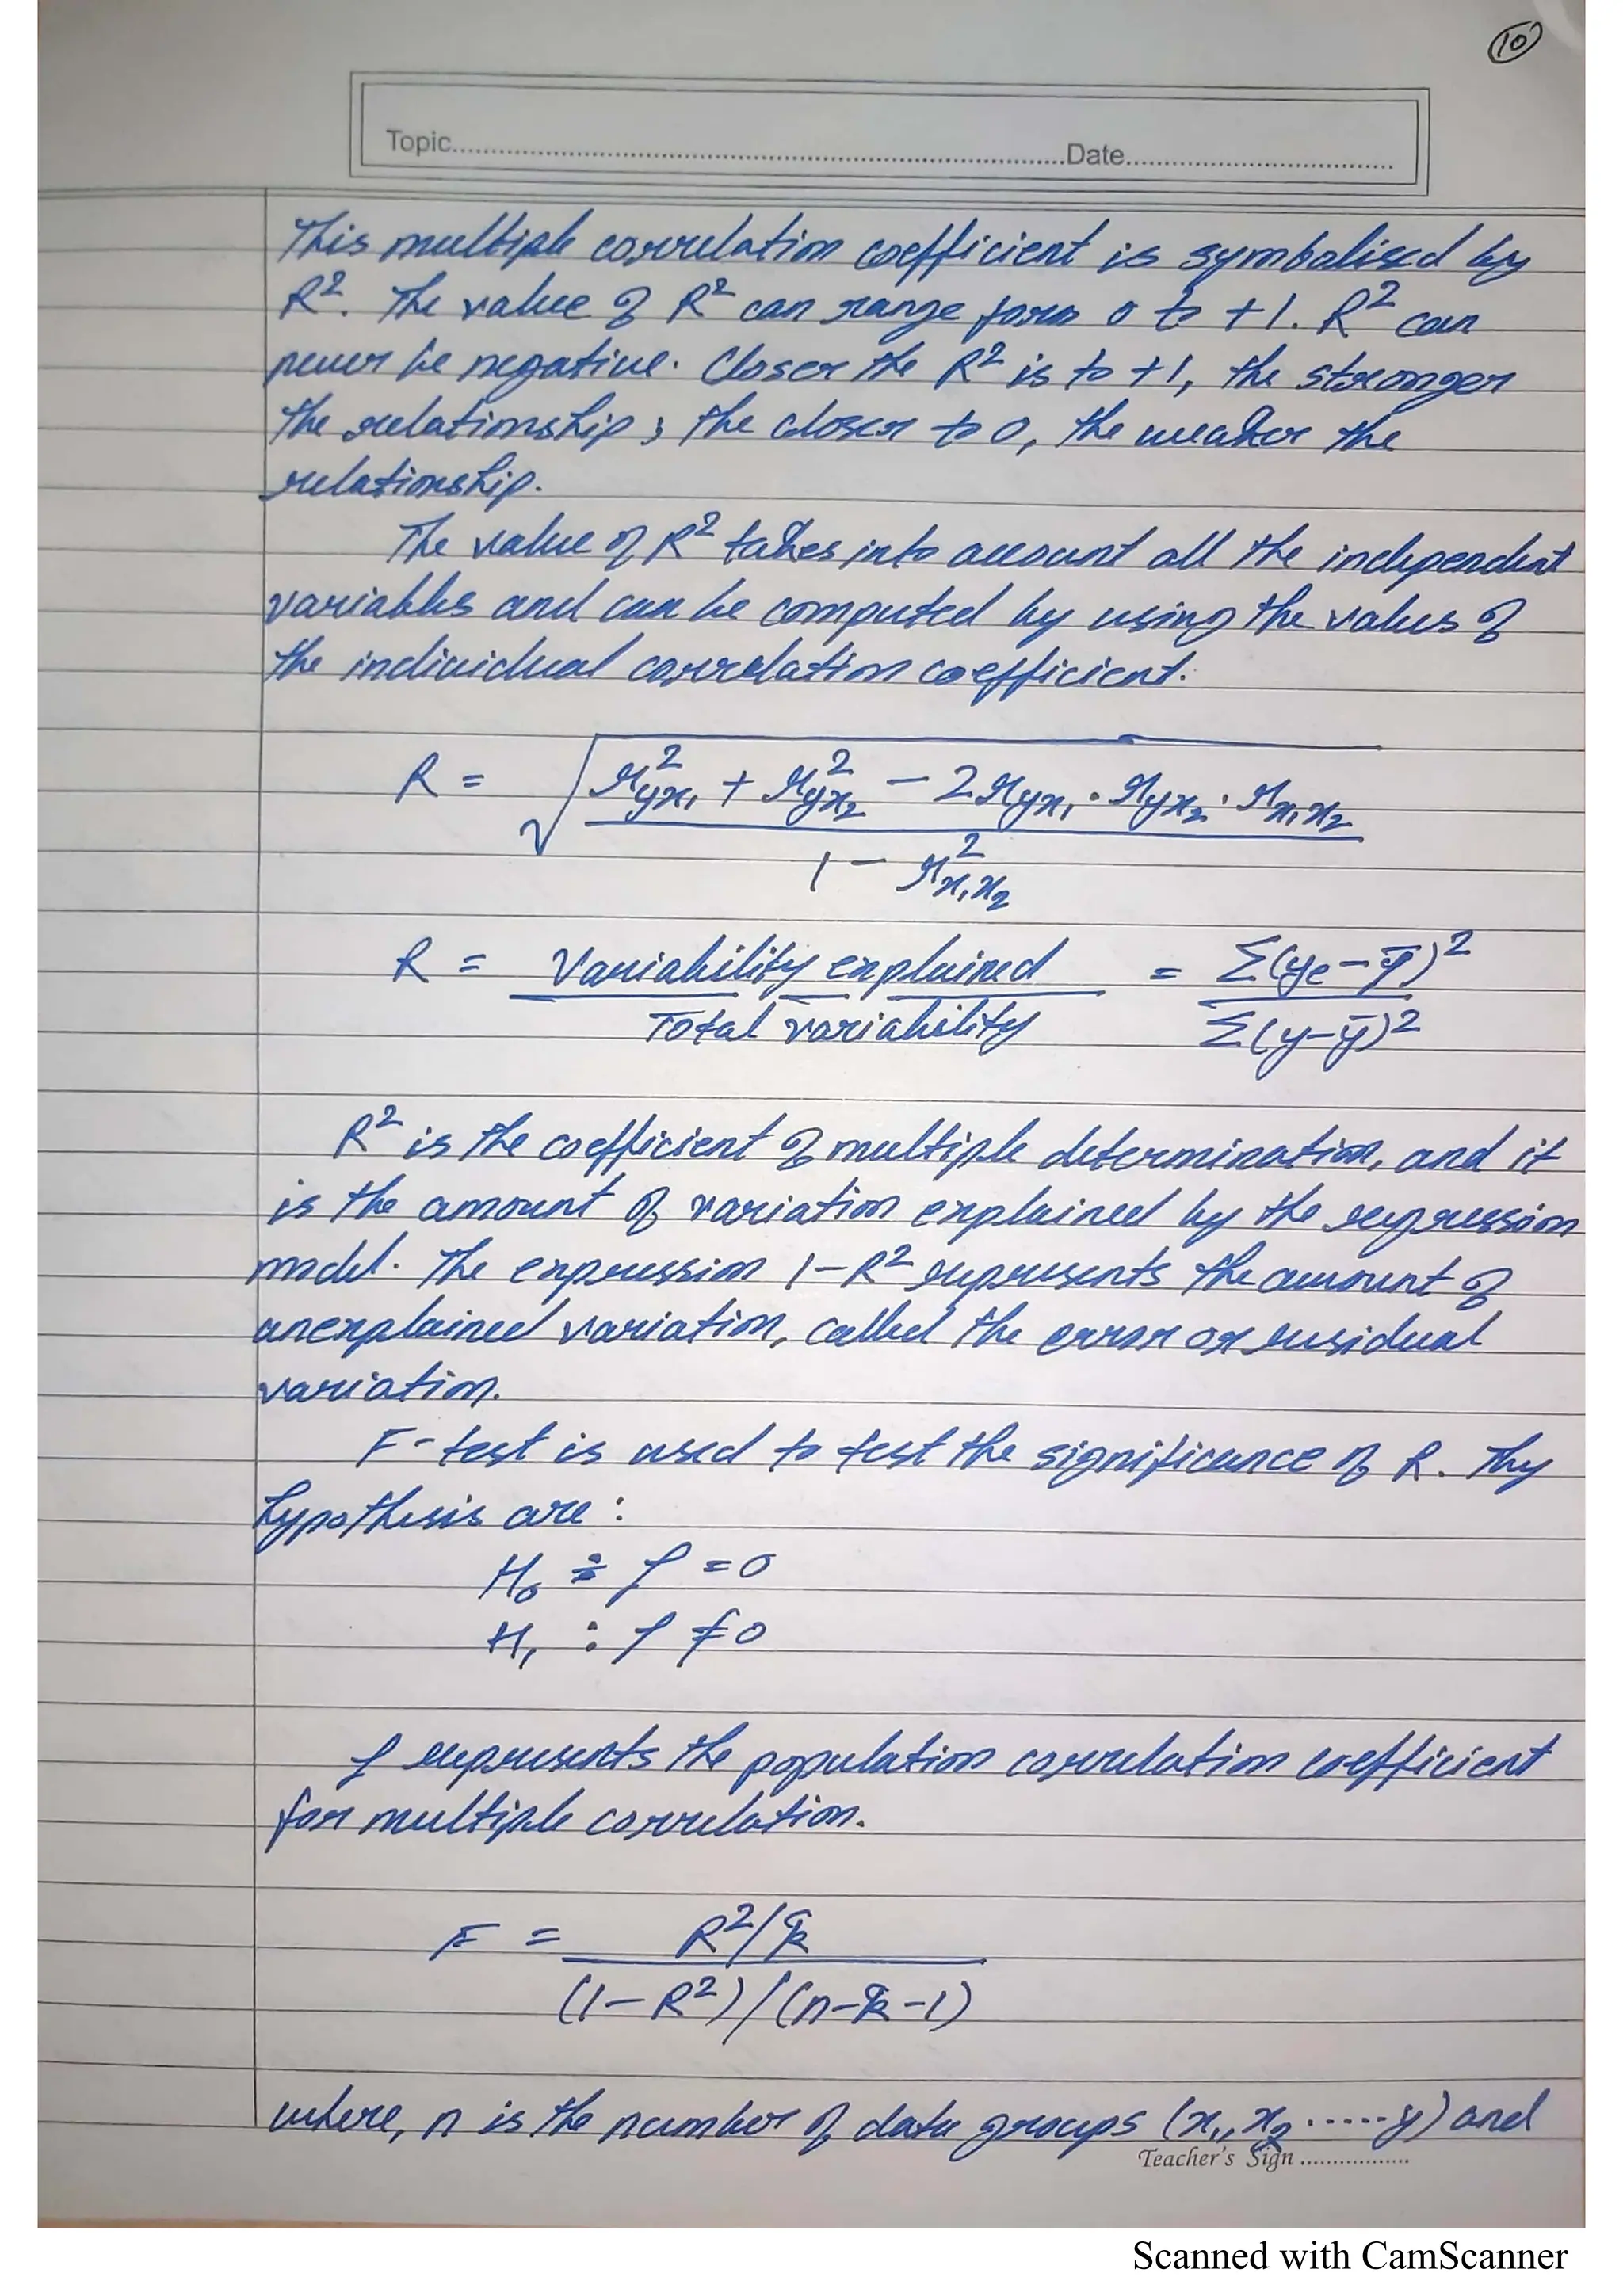 10
Topic..........Date..........
This multiple correlation coefficient is symbolised by
R². The value of R² can range form 0 to +1. R² can
never be negative. Closer the R² is to +1, the stronger
the relationship; the closer to 0, the weaker the
relationship.
The value of R² takes into account all the independent
variables and can be computed by using the values of
the individual correlation coefficient.
R = √((r²yx₁ + r²yx₂ - 2ryx₁ · ryx₂ · rx₁x₂) / (1 - r²x₁x₂))
R = Variability explained / Total variability = Σ(ye - ȳ)² / Σ(y - ȳ)²
R² is the coefficient of multiple determination, and it
is the amount of variation explained by the regression
model. The expression 1-R² represents the amount of
unexplained variation, called the error or residual
variation.
F-test is used to test the significance of R. Thy
hypothesis are :
H₀ : ρ = 0
H₁ : ρ ≠ 0
ρ represents the population correlation coefficient
for multiple correlation.
F = (R²/k) / ((1-R²)/(n-k-1))
where, n is the number of data groups (x₁, x₂ ..... y) and
Teacher's Sign ..................
Scanned with CamScanner